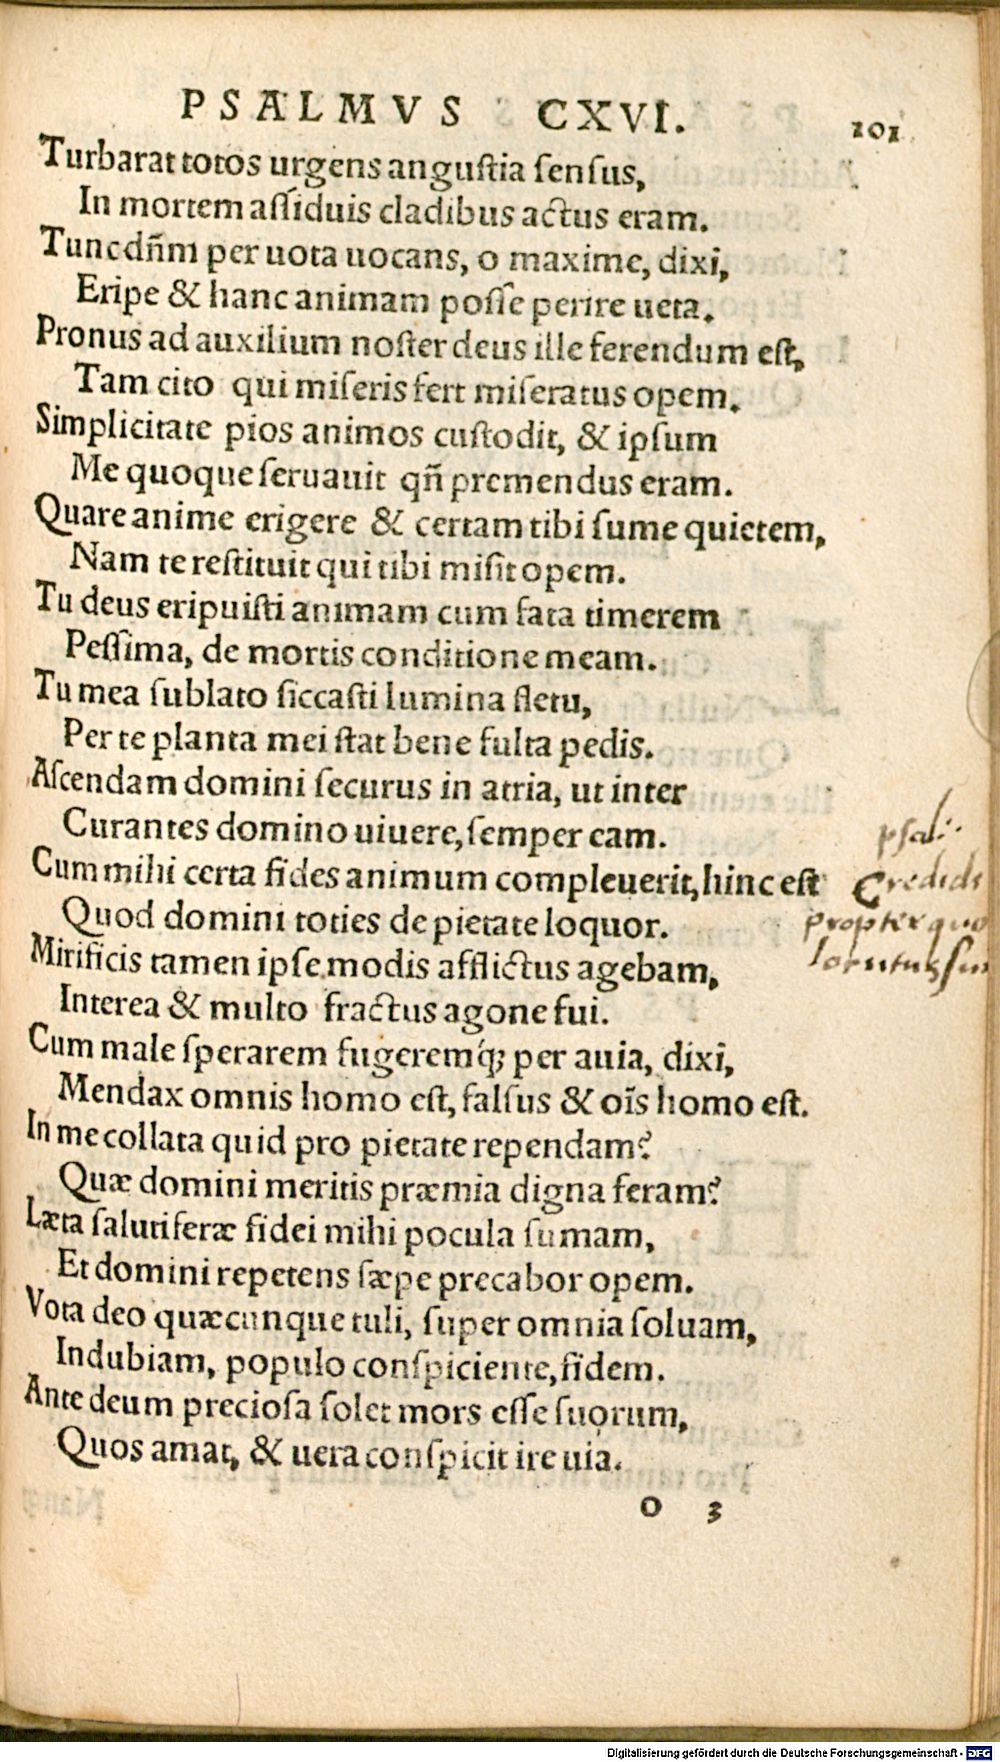 PSALMVS CXVI. 101
Turbarat totos urgens angustia sensus,
In mortem assiduis cladibus actus eram.
Tunc dñm per uota uocans, o maxime, dixi,
Eripe & hanc animam posse perire ueta.
Pronus ad auxilium noster deus ille ferendum est,
Tam cito qui miseris fert miseratus opem.
Simplicitate pios animos custodit, & ipsum
Me quoque seruauit qñ premendus eram.
Quare anime erigere & certam tibi sume quietem,
Nam te restituit qui tibi misit opem.
Tu deus eripuisti animam cum fata timerem
Pessima, de mortis conditione meam.
Tu mea sublato siccasti lumina fletu,
Per te planta mei stat bene fulta pedis.
Ascendam domini securus in atria, ut inter
Curantes domino uiuere, semper eam.
Cum mihi certa fides animum compleuerit, hinc est
Quod domini toties de pietate loquor.
Mirificis tamen ipse modis afflictus agebam,
Interea & multo fractus agone fui.
Cum male sperarem fugeremq́; per auia, dixi,
Mendax omnis homo est, falsus & oĩs homo est.
In me collata quid pro pietate rependam?
Quæ domini meritis præmia digna feram?
Læta salutiferæ fidei mihi pocula sumam,
Et domini repetens sæpe precabor opem.
Vota deo quæcunque tuli, super omnia soluam,
Indubiam, populo conspiciente, fidem.
Ante deum preciosa solet mors esse suorum,
Quos amat, & uera conspicit ire uia.
o 3
psal:
Credidi
propter quo
locutus su
Digitalisierung gefördert durch die Deutsche Forschungsgemeinschaft - DFG